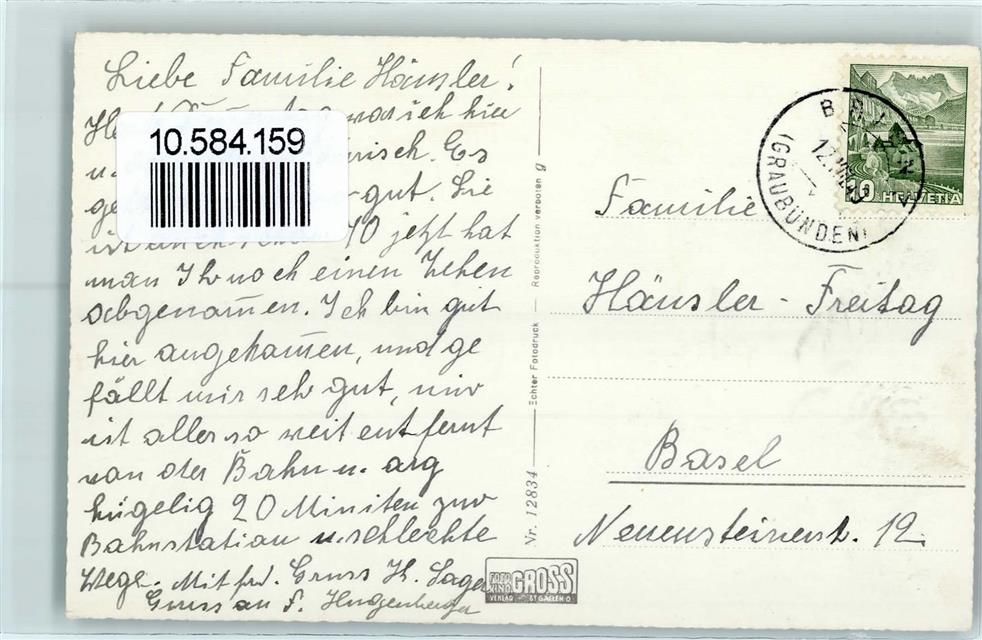 Liebe Familie Hänsler!
war ich hier
10.584.159
Es
gut. Sie
10 jetzt hat
man Ihr noch einen Zehen
abgenom̄en. Ich bin gut
hier angekom̄en, und ge
fällt mir sehr gut, nur
ist alles so weit entfernt
von der Bahn u. arg
hügelig 20 Miniten zur
Bahnstation u. schlechte
Wege. Mit frd. Gruss H. Sager
Gruss an F. Hugenberger
Nr. 12834 Echter Fotodruck Reproduktion verboten g
FOTO GROSS
VERLAG ST GALLEN O.
(GRAUBÜNDEN)
10 HELVETIA
Familie
Hänsler - Freitag
Basel
Neuensteinerst. 12.